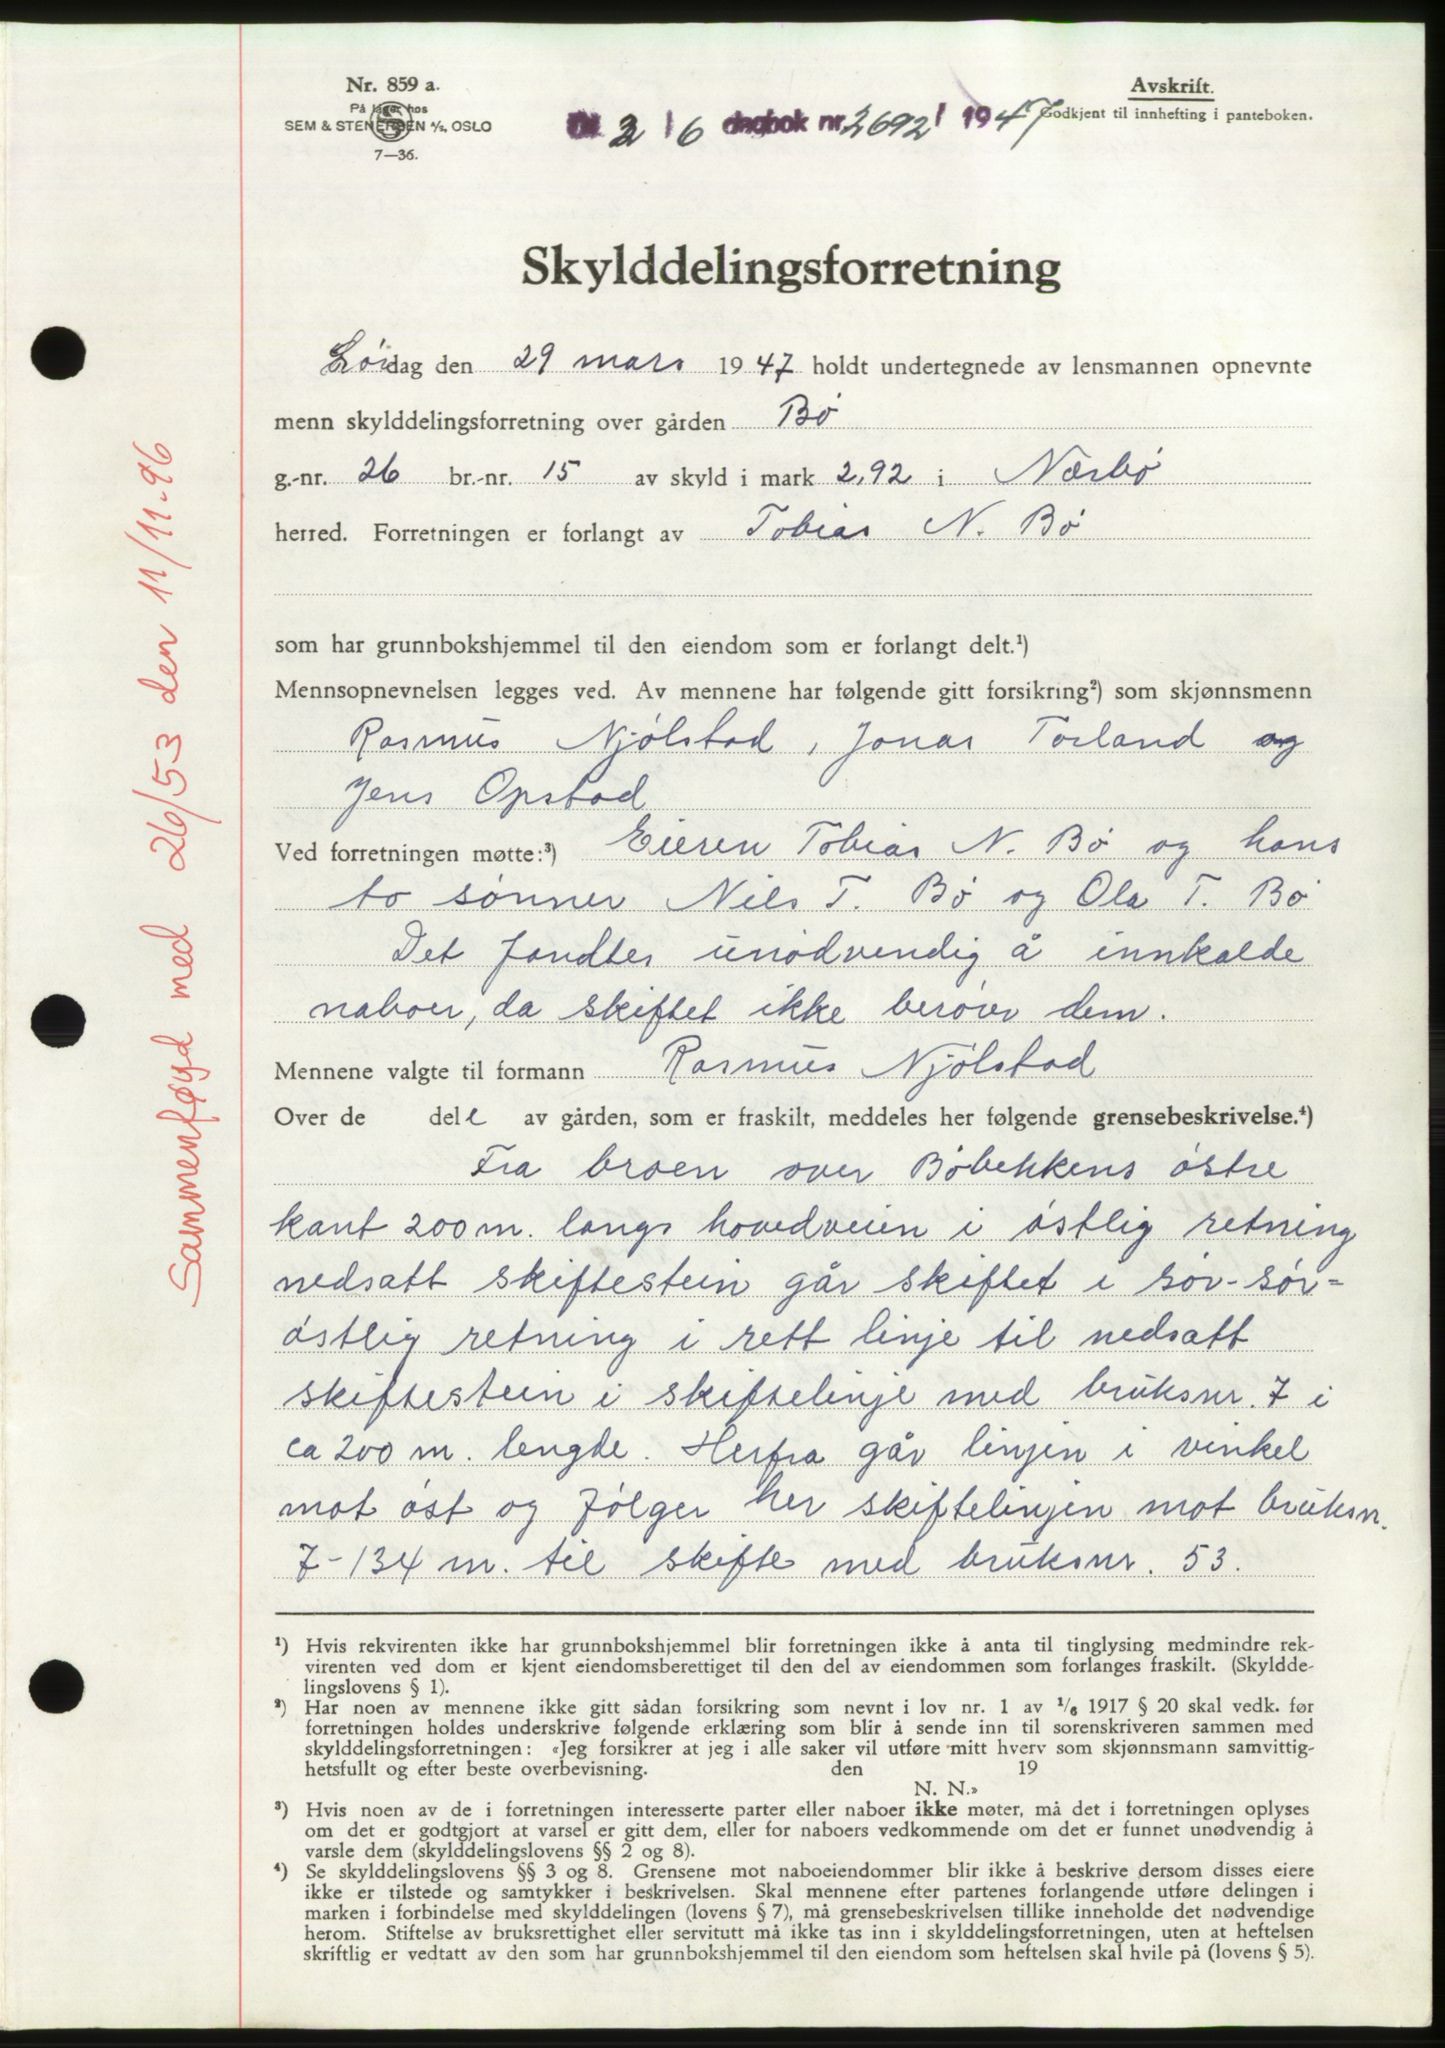 Nr. 859 a.
På lager hos
SEM & STENERSEN A/S, OSLO
7—36.
Avskrift.
Godkjent til innhefting i panteboken.
2 / 6 dagbok nr. 2692 / 1947
Skylddelingsforretning
Lördag den 29 mars 1947 holdt undertegnede av lensmannen opnevnte
menn skylddelingsforretning over gården Bö
g.-nr. 26 br.-nr. 15 av skyld i mark 2,92 i Nærbö
herred. Forretningen er forlangt av Tobias N. Bö
som har grunnbokshjemmel til den eiendom som er forlangt delt.¹)
Mennsopnevnelsen legges ved. Av mennene har følgende gitt forsikring²) som skjønnsmenn
Rasmus Njölstad, Jonas Torland og
Jens Opstad
Ved forretningen møtte:³) Eieren Tobias N. Bö og hans
to sönner Nils T. Bö og Ola T. Bö
Det fandtes unödvendig å innkalde
naboer, da skiftet ikke berörer dem.
Mennene valgte til formann Rasmus Njölstad
Over de dele av gården, som er fraskilt, meddeles her følgende grensebeskrivelse.⁴)
Fra broen over Böbekkens östre
kant 200 m. langs hovedveien i östlig retning
nedsatt skiftestein går skiftet i sör-sör-
östlig retning i rett linje til nedsatt
skiftestein i skiftelinje med bruksnr. 7 i
ca 200 m. lengde. Herfra går linjen i vinkel
mot öst og fölger her skiftelinjen mot bruksnr.
7 - 134 m. til skifte med bruksnr. 53.
Sammenføyd med 26/53 den 11/11-96
¹) Hvis rekvirenten ikke har grunnbokshjemmel blir forretningen ikke å anta til tinglysing medmindre rek-
virenten ved dom er kjent eiendomsberettiget til den del av eiendommen som forlanges fraskilt. (Skyldde-
lingslovens § 1).
²) Har noen av mennene ikke gitt sådan forsikring som nevnt i lov nr. 1 av ¹/₆ 1917 § 20 skal vedk. før
forretningen holdes underskrive følgende erklæring som blir å sende inn til sorenskriveren sammen med
skylddelingsforretningen: «Jeg forsikrer at jeg i alle saker vil utføre mitt hverv som skjønnsmann samvittig-
hetsfullt og efter beste overbevisning. den 19
N. N.»
³) Hvis noen av de i forretningen interesserte parter eller naboer ikke møter, må det i forretningen oplyses
om det er godtgjort at varsel er gitt dem, eller for naboers vedkommende om det er funnet unødvendig å
varsle dem (skylddelingslovens §§ 2 og 8).
⁴) Se skylddelingslovens §§ 3 og 8. Grensene mot naboeiendommer blir ikke å beskrive dersom disses eiere
ikke er tilstede og samtykker i beskrivelsen. Skal mennene efter partenes forlangende utføre delingen i
marken i forbindelse med skylddelingen (lovens § 7), må grensebeskrivelsen tillike inneholde det nødvendige
herom. Stiftelse av bruksrettighet eller servitutt må ikke tas inn i skylddelingsforretningen, uten at heftelsen
skriftlig er vedtatt av den som har grunnbokshjemmel til den eiendom som heftelsen skal hvile på (lovens § 5).